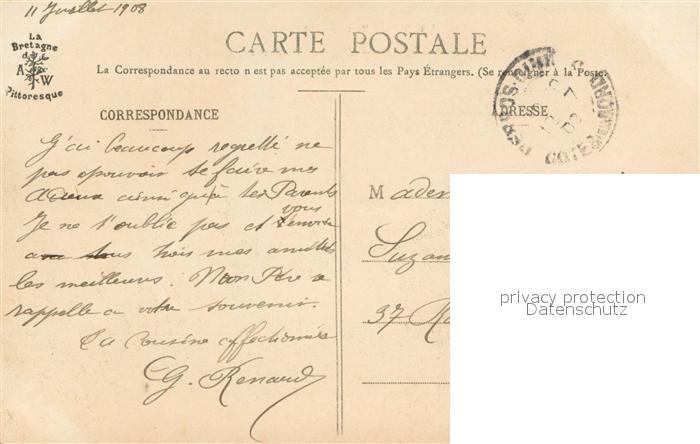 11 Juillet 1908
La
Bretagne
A W
Pittoresque
CARTE POSTALE
La Correspondance au recto n est pas acceptée par tous les Pays Étrangers. (Se renseigner à la Poste.
CORRESPONDANCE
ADRESSE
J'ai beaucoup regretté ne
pas pouvoir te faire mes
adieux ainsi qu'à tes Parents
Je ne t'oublie pas et vous envoie
a tous trois mes amitiés
les meilleurs. Mon Père se
rappelle a votre souvenir.
Ta cousine affectionnée
G. Renard
Madem
Suzan
37 R
privacy protection
Datenschutz